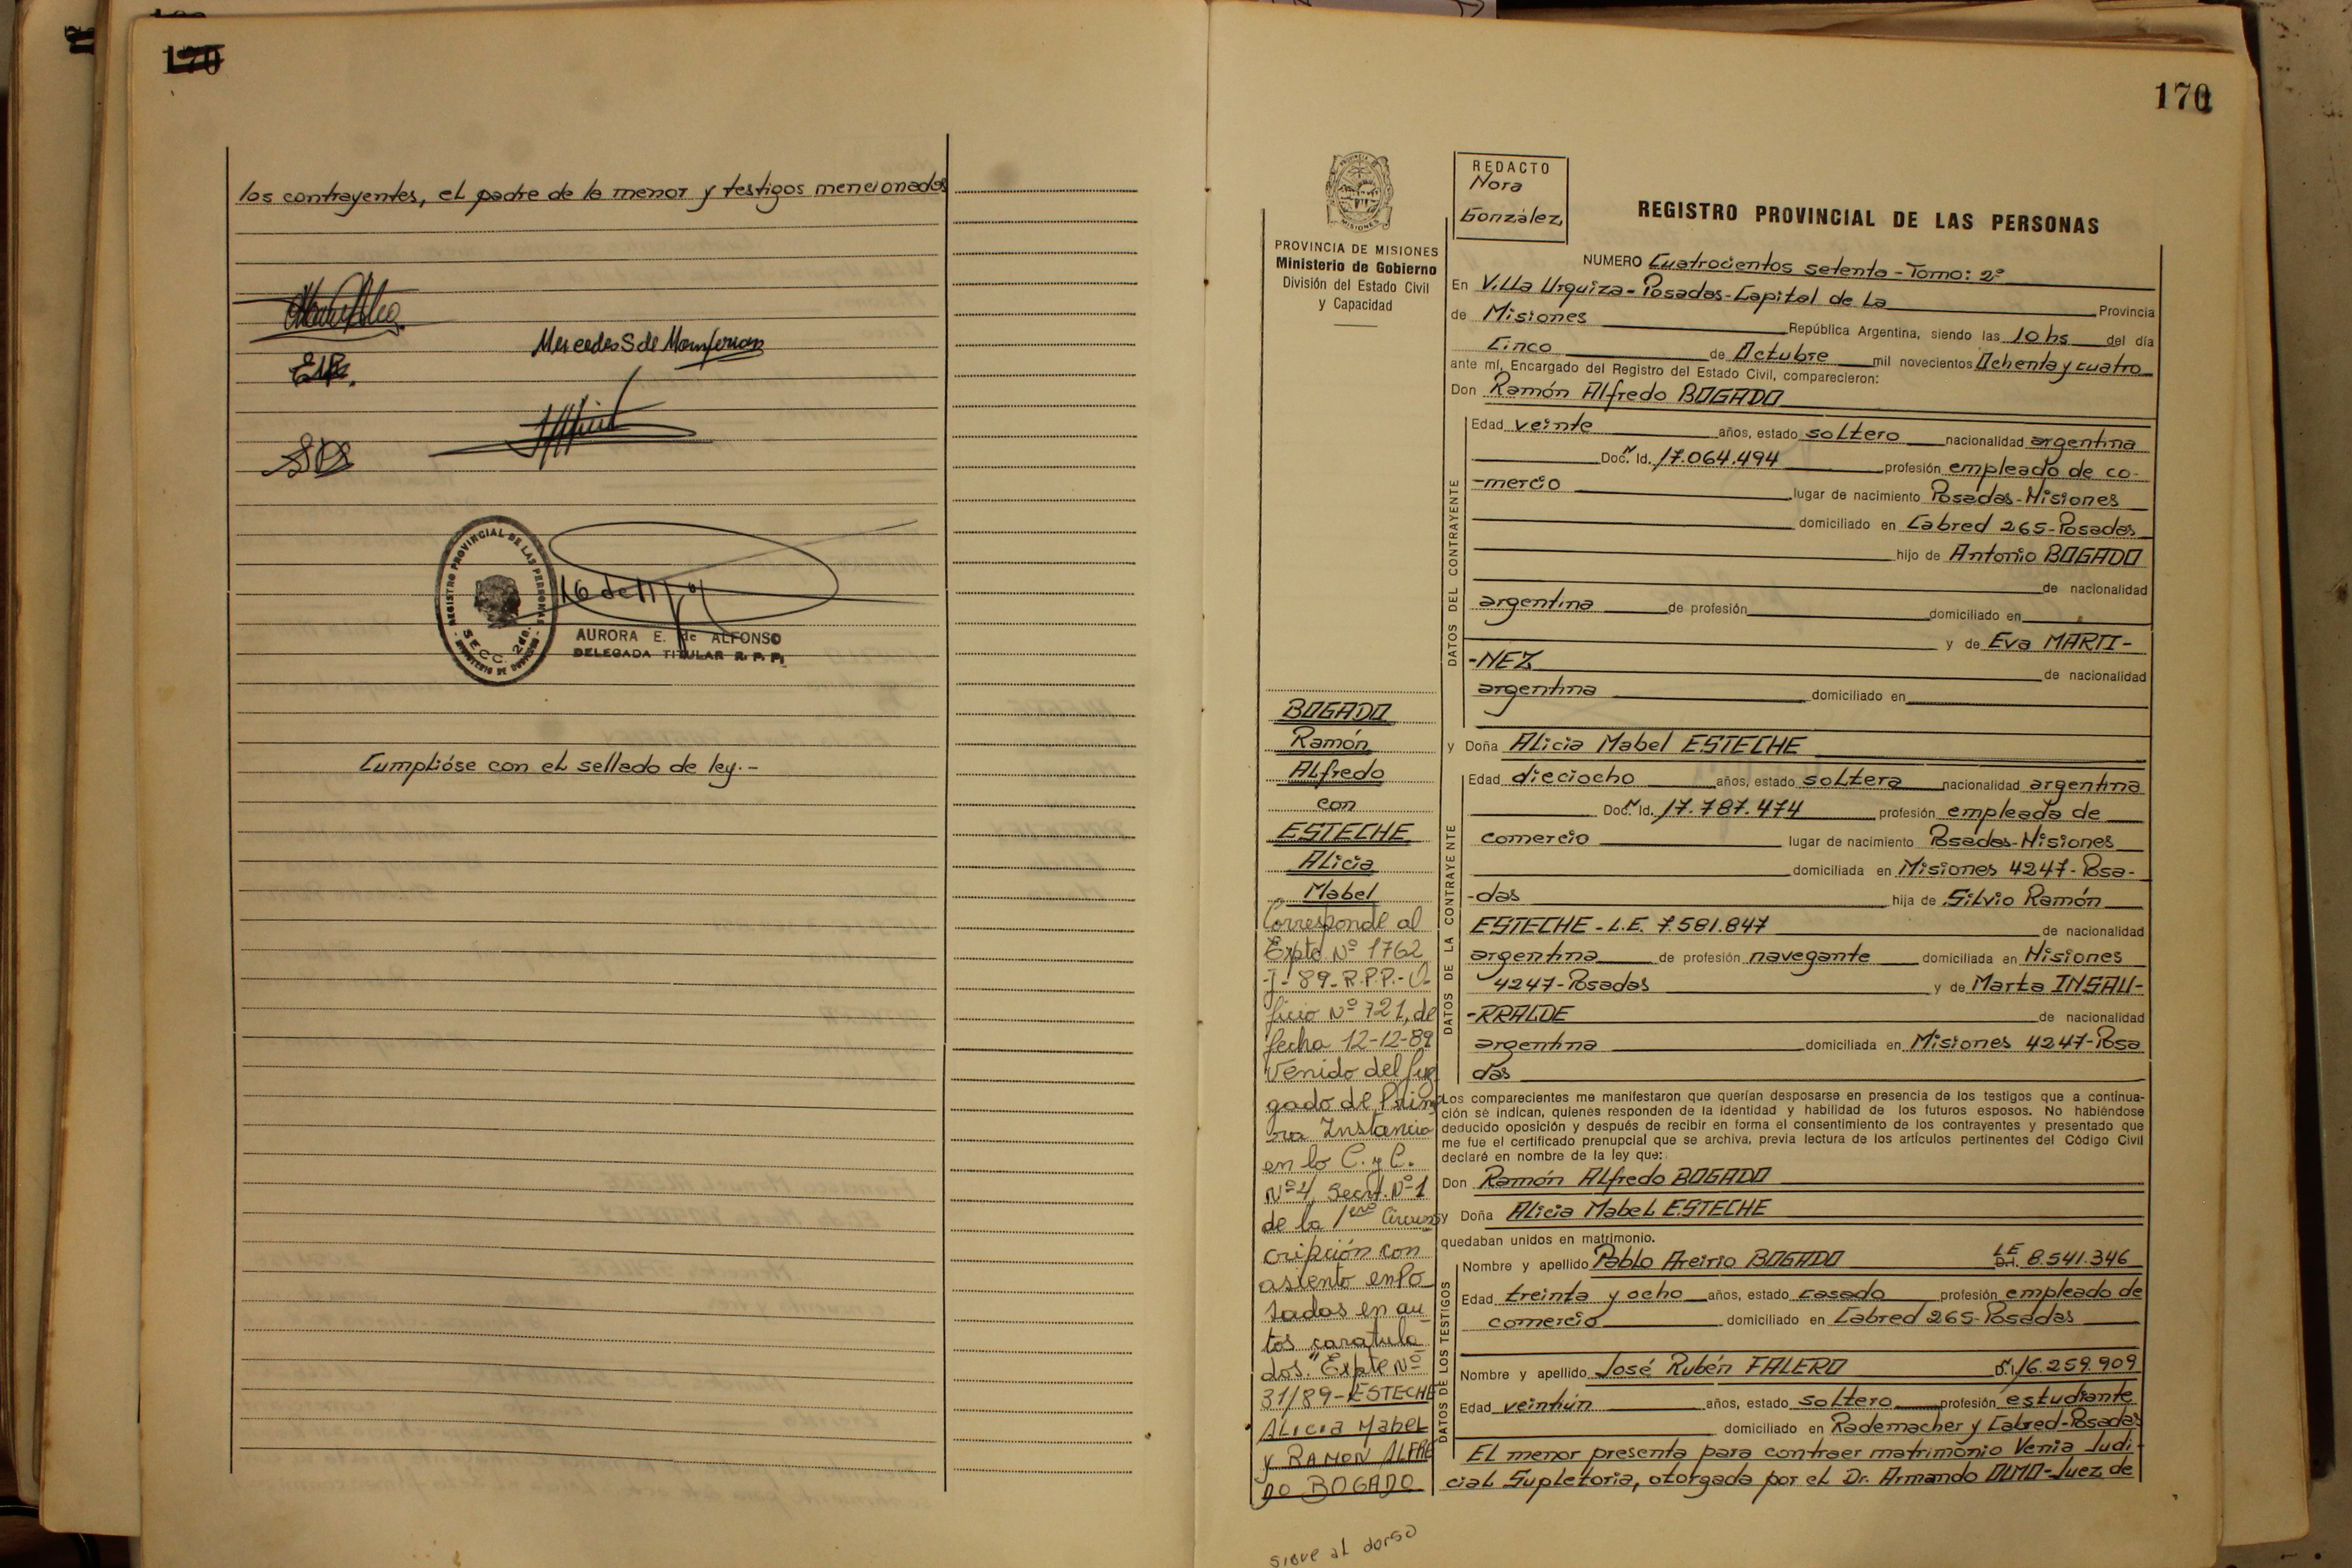 170
los contrayentes, el padre de la menor y testigos mencionados
Mercedes S de Monferran
REGISTRO PROVINCIAL DE LAS PERSONAS
SECC. 2da.
MINISTERIO DE GOBIERNO
AURORA E. de ALFONSO
DELEGADA TITULAR R.P.P.
Cumplióse con el sellado de ley.-
170
PROVINCIA DE MISIONES
Ministerio de Gobierno
División del Estado Civil
y Capacidad
REDACTO
Nora
González
REGISTRO PROVINCIAL DE LAS PERSONAS
NUMERO Cuatrocientos setenta-Tomo: 2º
En Villa Urquiza-Posadas-Capital de La Provincia
de Misiones República Argentina, siendo las 10 hs del día
Cinco de Octubre mil novecientos Ochenta y cuatro
ante mí, Encargado del Registro del Estado Civil, comparecieron:
Don Ramón Alfredo BOGADO
DATOS DEL CONTRAYENTE
Edad veinte años, estado soltero nacionalidad argentina
Doc. Id. 17.064.494 profesión empleado de co-
-mercio lugar de nacimiento Posadas-Misiones
domiciliado en Cabred 265-Posadas
hijo de Antonio BOGADO
de nacionalidad
argentina de profesión domiciliado en
y de Eva MARTI-
-NEZ
de nacionalidad
argentina domiciliado en
y Doña Alicia Mabel ESTECHE
DATOS DE LA CONTRAYENTE
Edad dieciocho años, estado soltera nacionalidad argentina
Doc. Id. 17.787.474 profesión empleada de
comercio lugar de nacimiento Posadas-Misiones
domiciliada en Misiones 4247-Posa-
-das hija de Silvio Ramón
ESTECHE-L.E. 7.581.847 de nacionalidad
argentina de profesión navegante domiciliada en Misiones
4247-Posadas y de Marta INSAU-
-RRALDE de nacionalidad
argentina domiciliada en Misiones 4247-Posa
das
Los comparecientes me manifestaron que querían desposarse en presencia de los testigos que a continua-
ción se indican, quienes responden de la identidad y habilidad de los futuros esposos. No habiéndose
deducido oposición y después de recibir en forma el consentimiento de los contrayentes y presentado que
me fue el certificado prenupcial que se archiva, previa lectura de los artículos pertinentes del Código Civil
declaré en nombre de la ley que:
Don Ramón Alfredo BOGADO
y Doña Alicia Mabel ESTECHE
quedaban unidos en matrimonio.
DATOS DE LOS TESTIGOS
Nombre y apellido Pablo BOGADO L.E. 8.541.346
Edad treinta y ocho años, estado casado profesión empleado de
comercio domiciliado en Cabred 265-Posadas
Nombre y apellido José Rubén FALERO 16.259.909
Edad veintiún años, estado soltero profesión estudiante
domiciliado en Rademacher y Cabred-Posadas
El menor presenta para contraer matrimonio Venia Judi-
cial Supletoria, otorgada por el Dr. Armando OLMO-Juez de
BOGADO
Ramón
Alfredo
con
ESTECHE
Alicia
Mabel
Corresponde al
Expte Nº 1762
-J-89-R.P.P.-O-
ficio Nº 721, de
fecha 12-12-89
Venido del Juz
gado de Prime
ra Instancia
en lo C. y C.
Nº 4, Secret. Nº 1
de la 1era Circuns
cripción con
asiento en Po
sadas en au
tos caratula
dos: "Expte Nº
31/89-ESTECHE
ALICIA MABEL
Y RAMON ALFRE
DO BOGADO
sigue al dorso